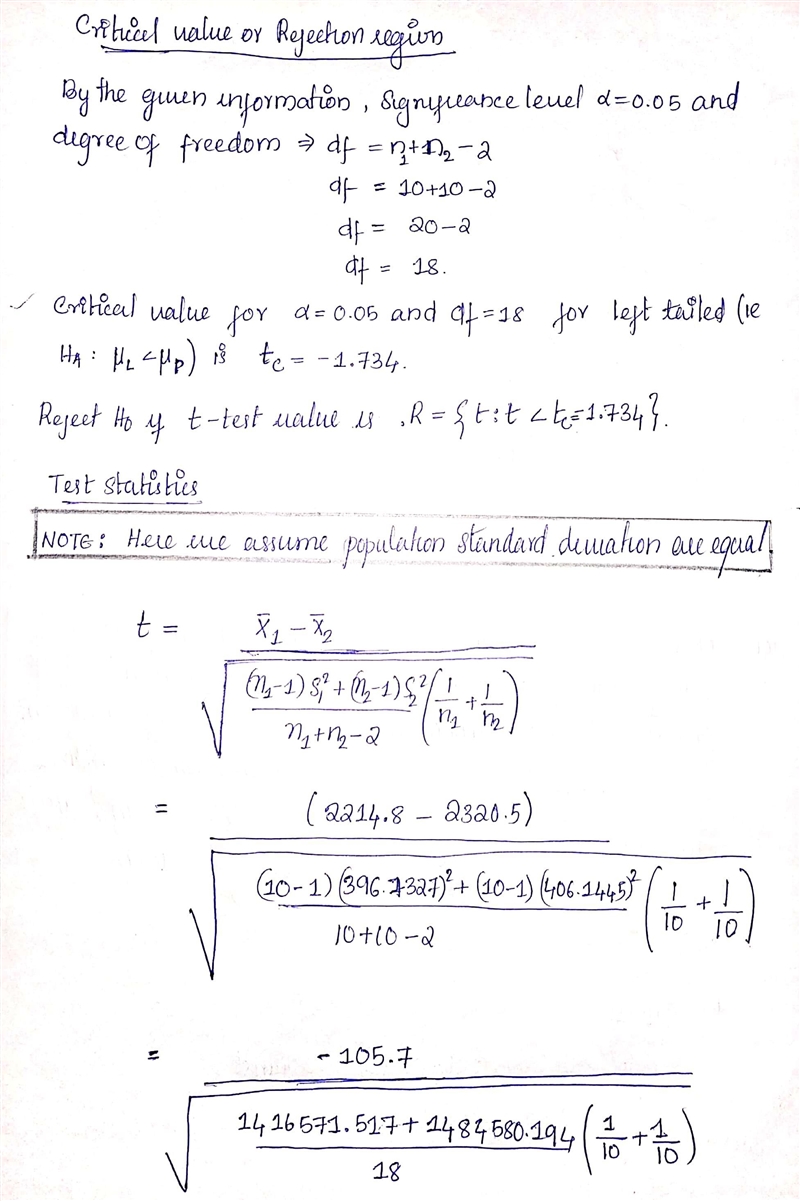 Critical value or Rejection region
By the given information, Significance level α=0.05 and
degree of freedom ⇒ df = n₁+n₂-2
df = 10+10-2
df = 20-2
df = 18.
✓ Critical value for α=0.05 and df=18 for left tailed (ie
H_A : μ_L < μ_P) is t_c = -1.734.
Reject H₀ if t-test value is , R = { t : t < t_c = 1.734 }.
Test statistics
NOTE: Here we assume population standard deviation are equal.
t = (x̄₁ - x̄₂) / √( ((n₁-1)S₁² + (n₂-1)S₂²) / (n₁+n₂-2) (1/n₁ + 1/n₂) )
= (2214.8 - 2320.5) / √( ((10-1)(396.7327)² + (10-1)(406.1445)²) / (10+10-2) (1/10 + 1/10) )
= -105.7 / √( (1416571.517 + 1484580.194) / 18 (1/10 + 1/10) )